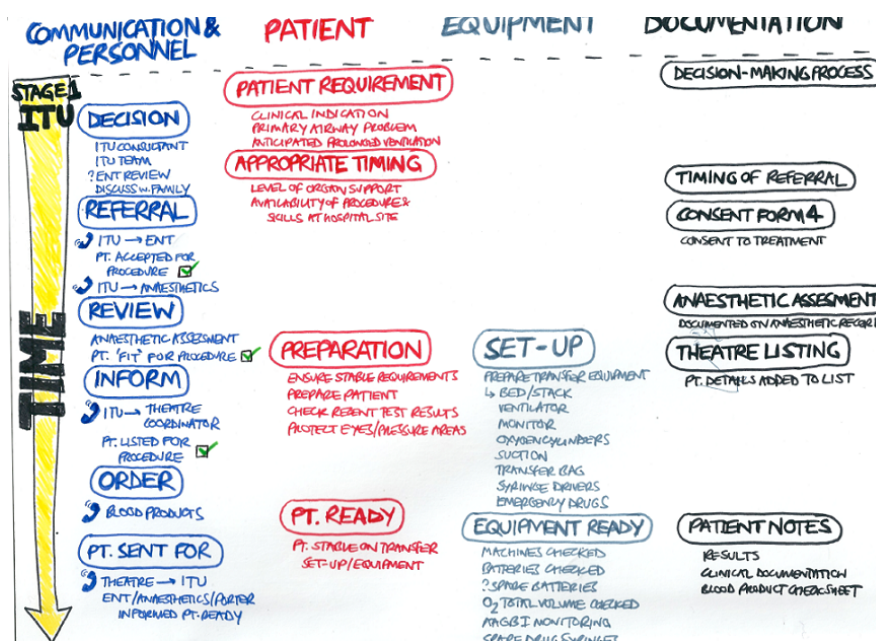 COMMUNICATION &
PERSONNEL
PATIENT
EQUIPMENT
DOCUMENTATION
STAGE 1
ITU
TIME
DECISION
ITU CONSULTANT
ITU TEAM
? ENT REVIEW
DISCUSS w. FAMILY
REFERRAL
ITU → ENT
PT. ACCEPTED FOR
PROCEDURE
ITU → ANAESTHETICS
REVIEW
ANAESTHETIC ASSESSMENT
PT. 'FIT' FOR PROCEDURE
INFORM
ITU → THEATRE
COORDINATOR
PT. LISTED FOR
PROCEDURE
ORDER
BLOOD PRODUCTS
PT. SENT FOR
THEATRE → ITU
ENT/ANAESTHETICS/PORTER
INFORMED PT. READY
PATIENT REQUIREMENT
CLINICAL INDICATION
PRIMARY AIRWAY PROBLEM
ANTICIPATED PROLONGED VENTILATION
APPROPRIATE TIMING
LEVEL OF ORGAN SUPPORT
AVAILABILITY OF PROCEDURE &
SKILLS AT HOSPITAL SITE
PREPARATION
ENSURE STABLE REQUIREMENTS
PREPARE PATIENT
CHECK RECENT TEST RESULTS
PROTECT EYES/PRESSURE AREAS
PT. READY
PT. STABLE ON TRANSFER
SET-UP/EQUIPMENT
SET-UP
PREPARE TRANSFER EQUIPMENT
↳ BED/STACK
VENTILATOR
MONITOR
OXYGEN CYLINDERS
SUCTION
TRANSFER BAG
SYRINGE DRIVERS
EMERGENCY DRUGS
EQUIPMENT READY
MACHINES CHECKED
BATTERIES CHECKED
? SPARE BATTERIES
O2 TOTAL VOLUME CHECKED
AAGBI MONITORING
SPARE DRUG SYRINGES
DECISION-MAKING PROCESS
TIMING OF REFERRAL
CONSENT FORM 4
CONSENT TO TREATMENT
ANAESTHETIC ASSESMENT
DOCUMENTED ON ANAESTHETIC RECORD
THEATRE LISTING
PT. DETAILS ADDED TO LIST
PATIENT NOTES
RESULTS
CLINICAL DOCUMENTATION
BLOOD PRODUCT CHECKSHEET